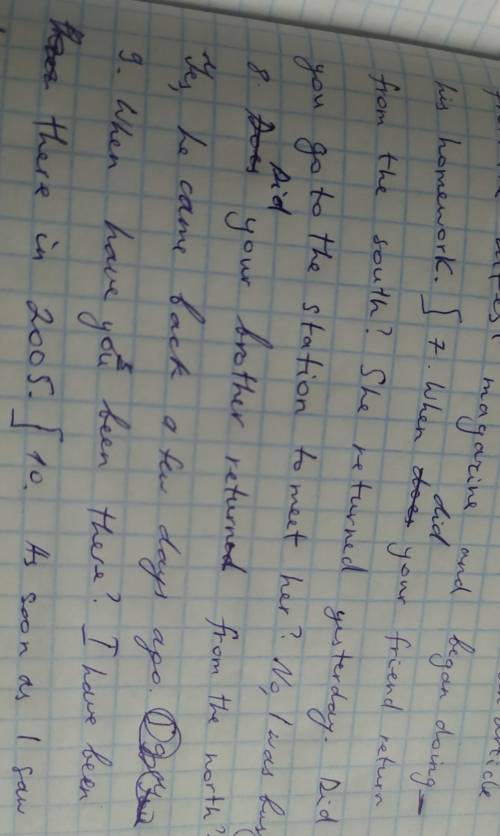 magazine and
his homework. [ 7. When did your friend return began doing
from the south? She returned yesterday. Did
you go to the station to meet her? No, I was busy
8. Did your brother returned from the north?
Yes, he came back a few days ago.
9. When have you been there? I have been
there in 2005. ] [ 10. As soon as I saw